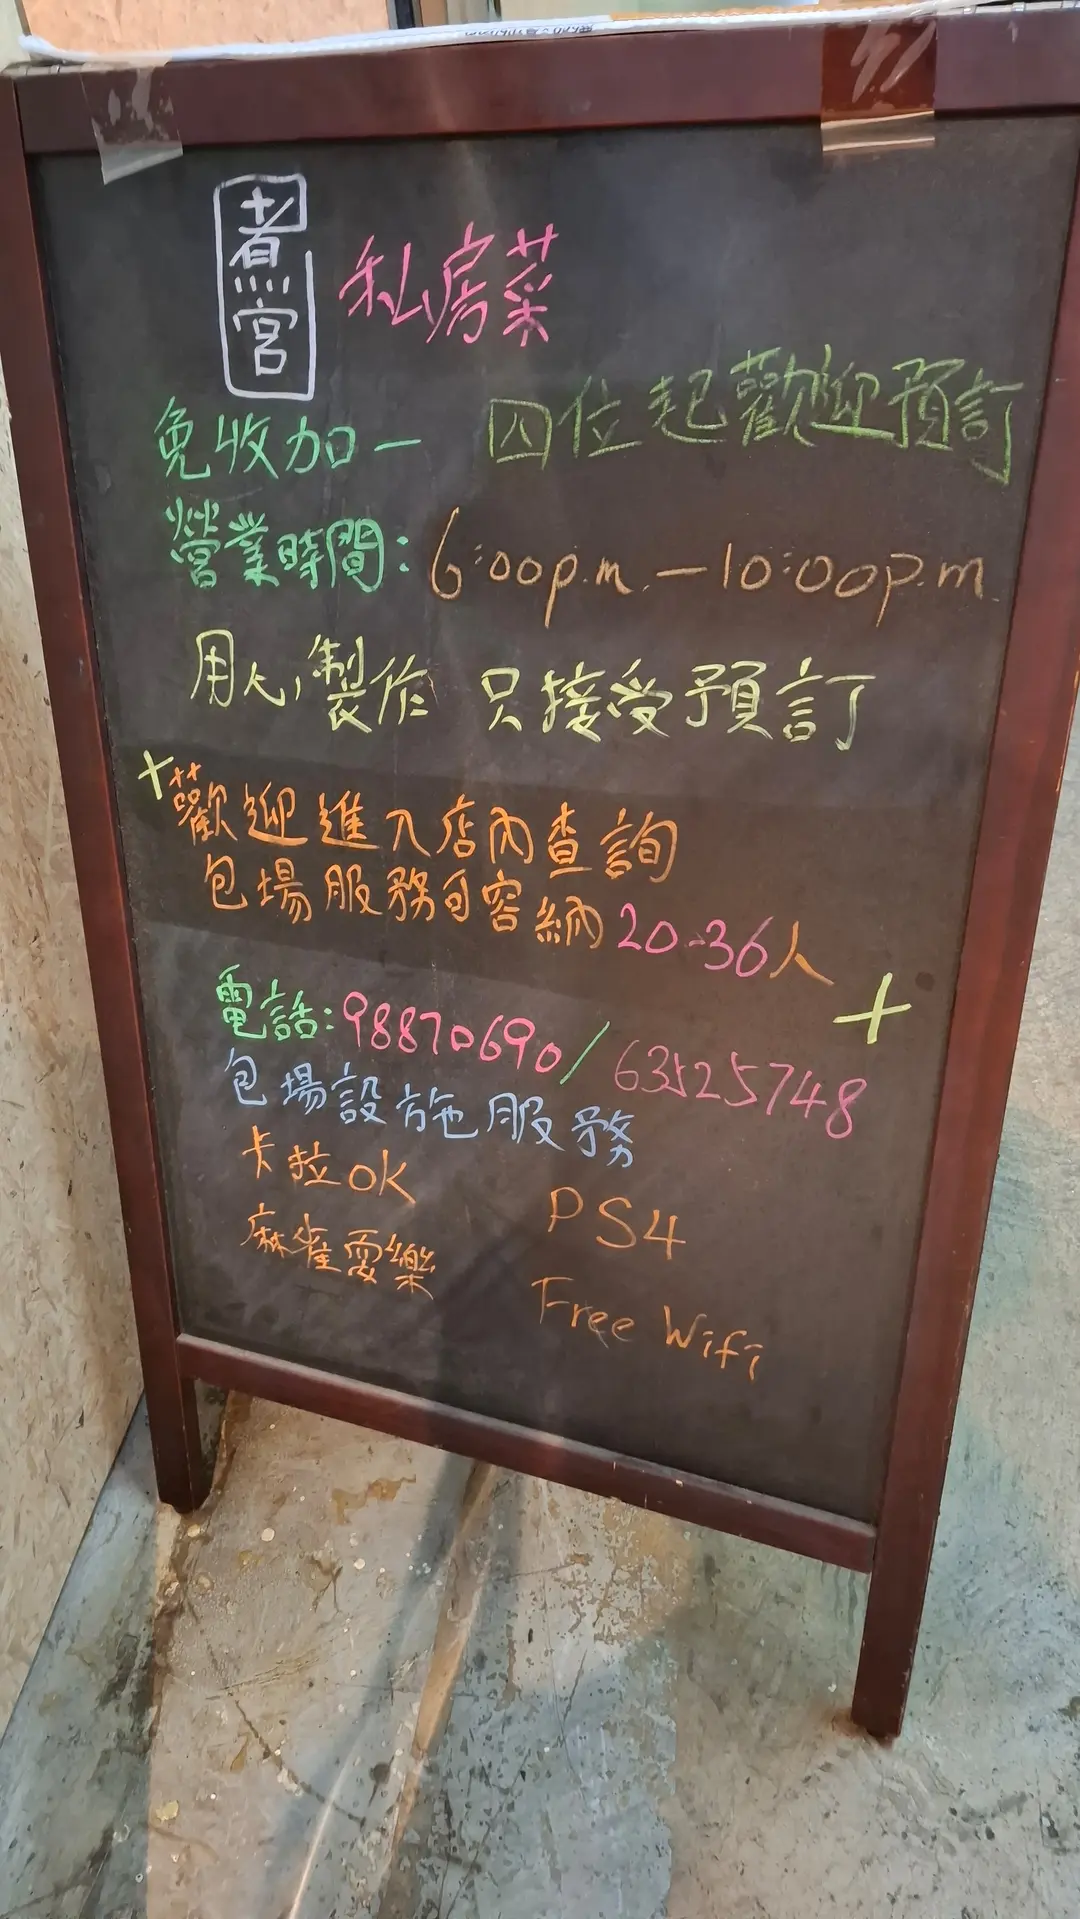 煮宮 私房菜
免收加一 四位起歡迎預訂
營業時間：6:00p.m.—10:00p.m.
用心製作 只接受預訂
歡迎進入店內查詢
包場服務可容納20-36人
電話：98870690/63525748
包場設施服務
卡拉OK PS4
麻雀耍樂 Free Wifi